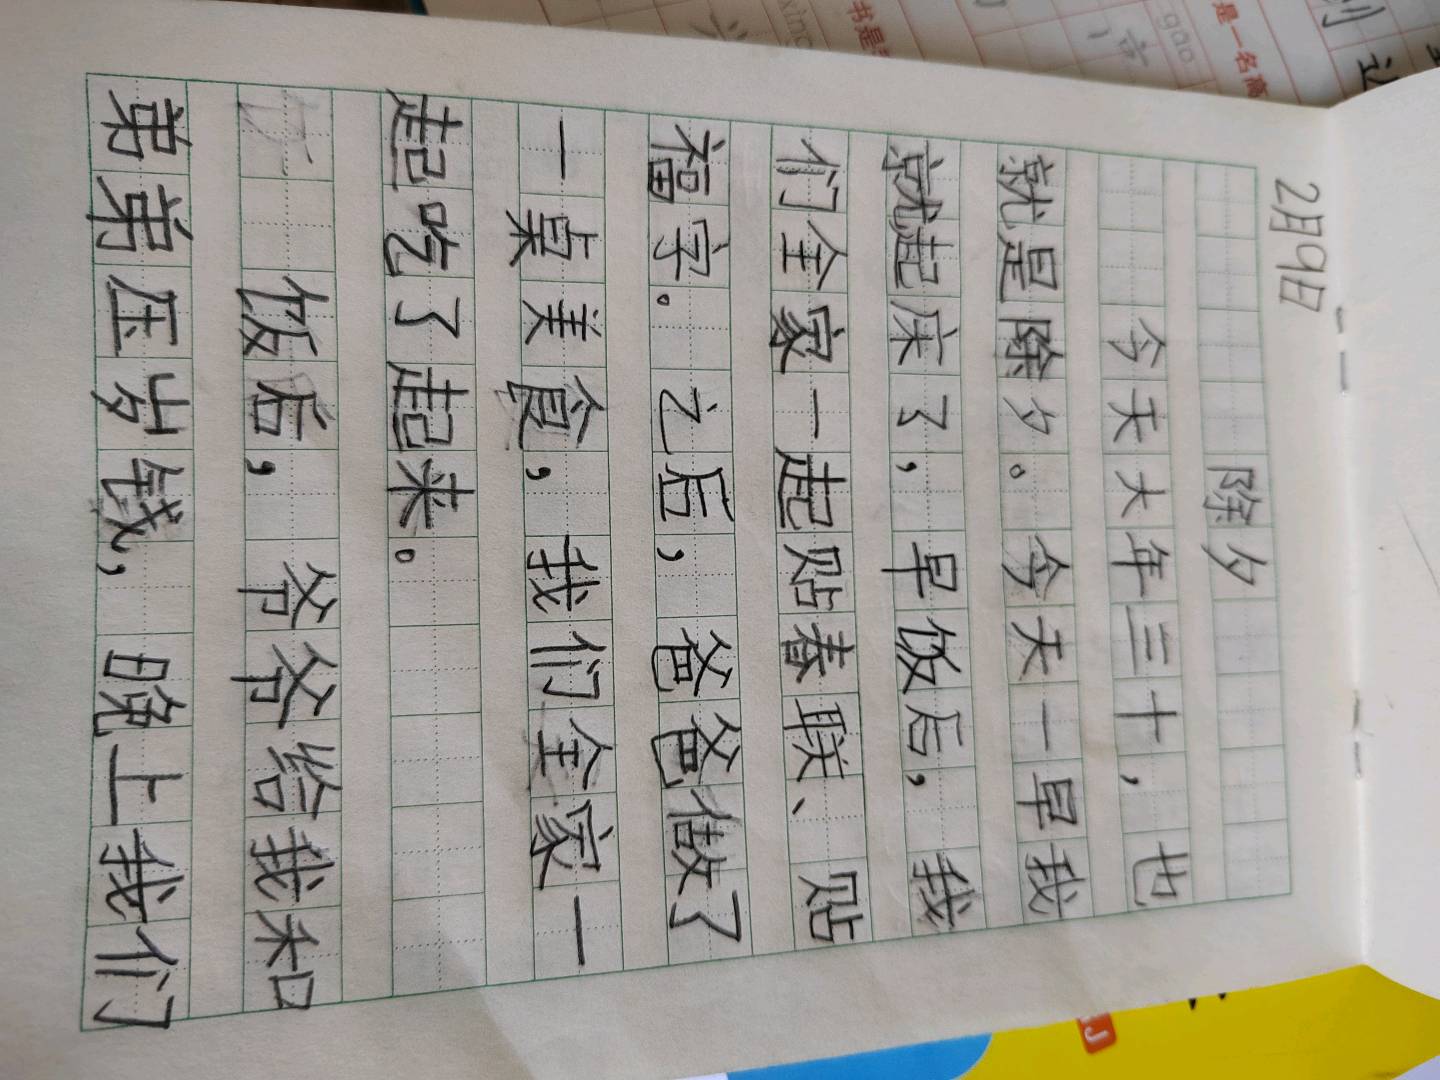 2月9日
除夕
今天大年三十，也
就是除夕。今天一早我
就起床了，早饭后，我
们全家一起贴春联、贴
福字。之后，爸爸做了
一桌美食，我们全家一
起吃了起来。
饭后，爷爷给我和
弟弟压岁钱，晚上我们
书是
xing
gao
高
是一名高